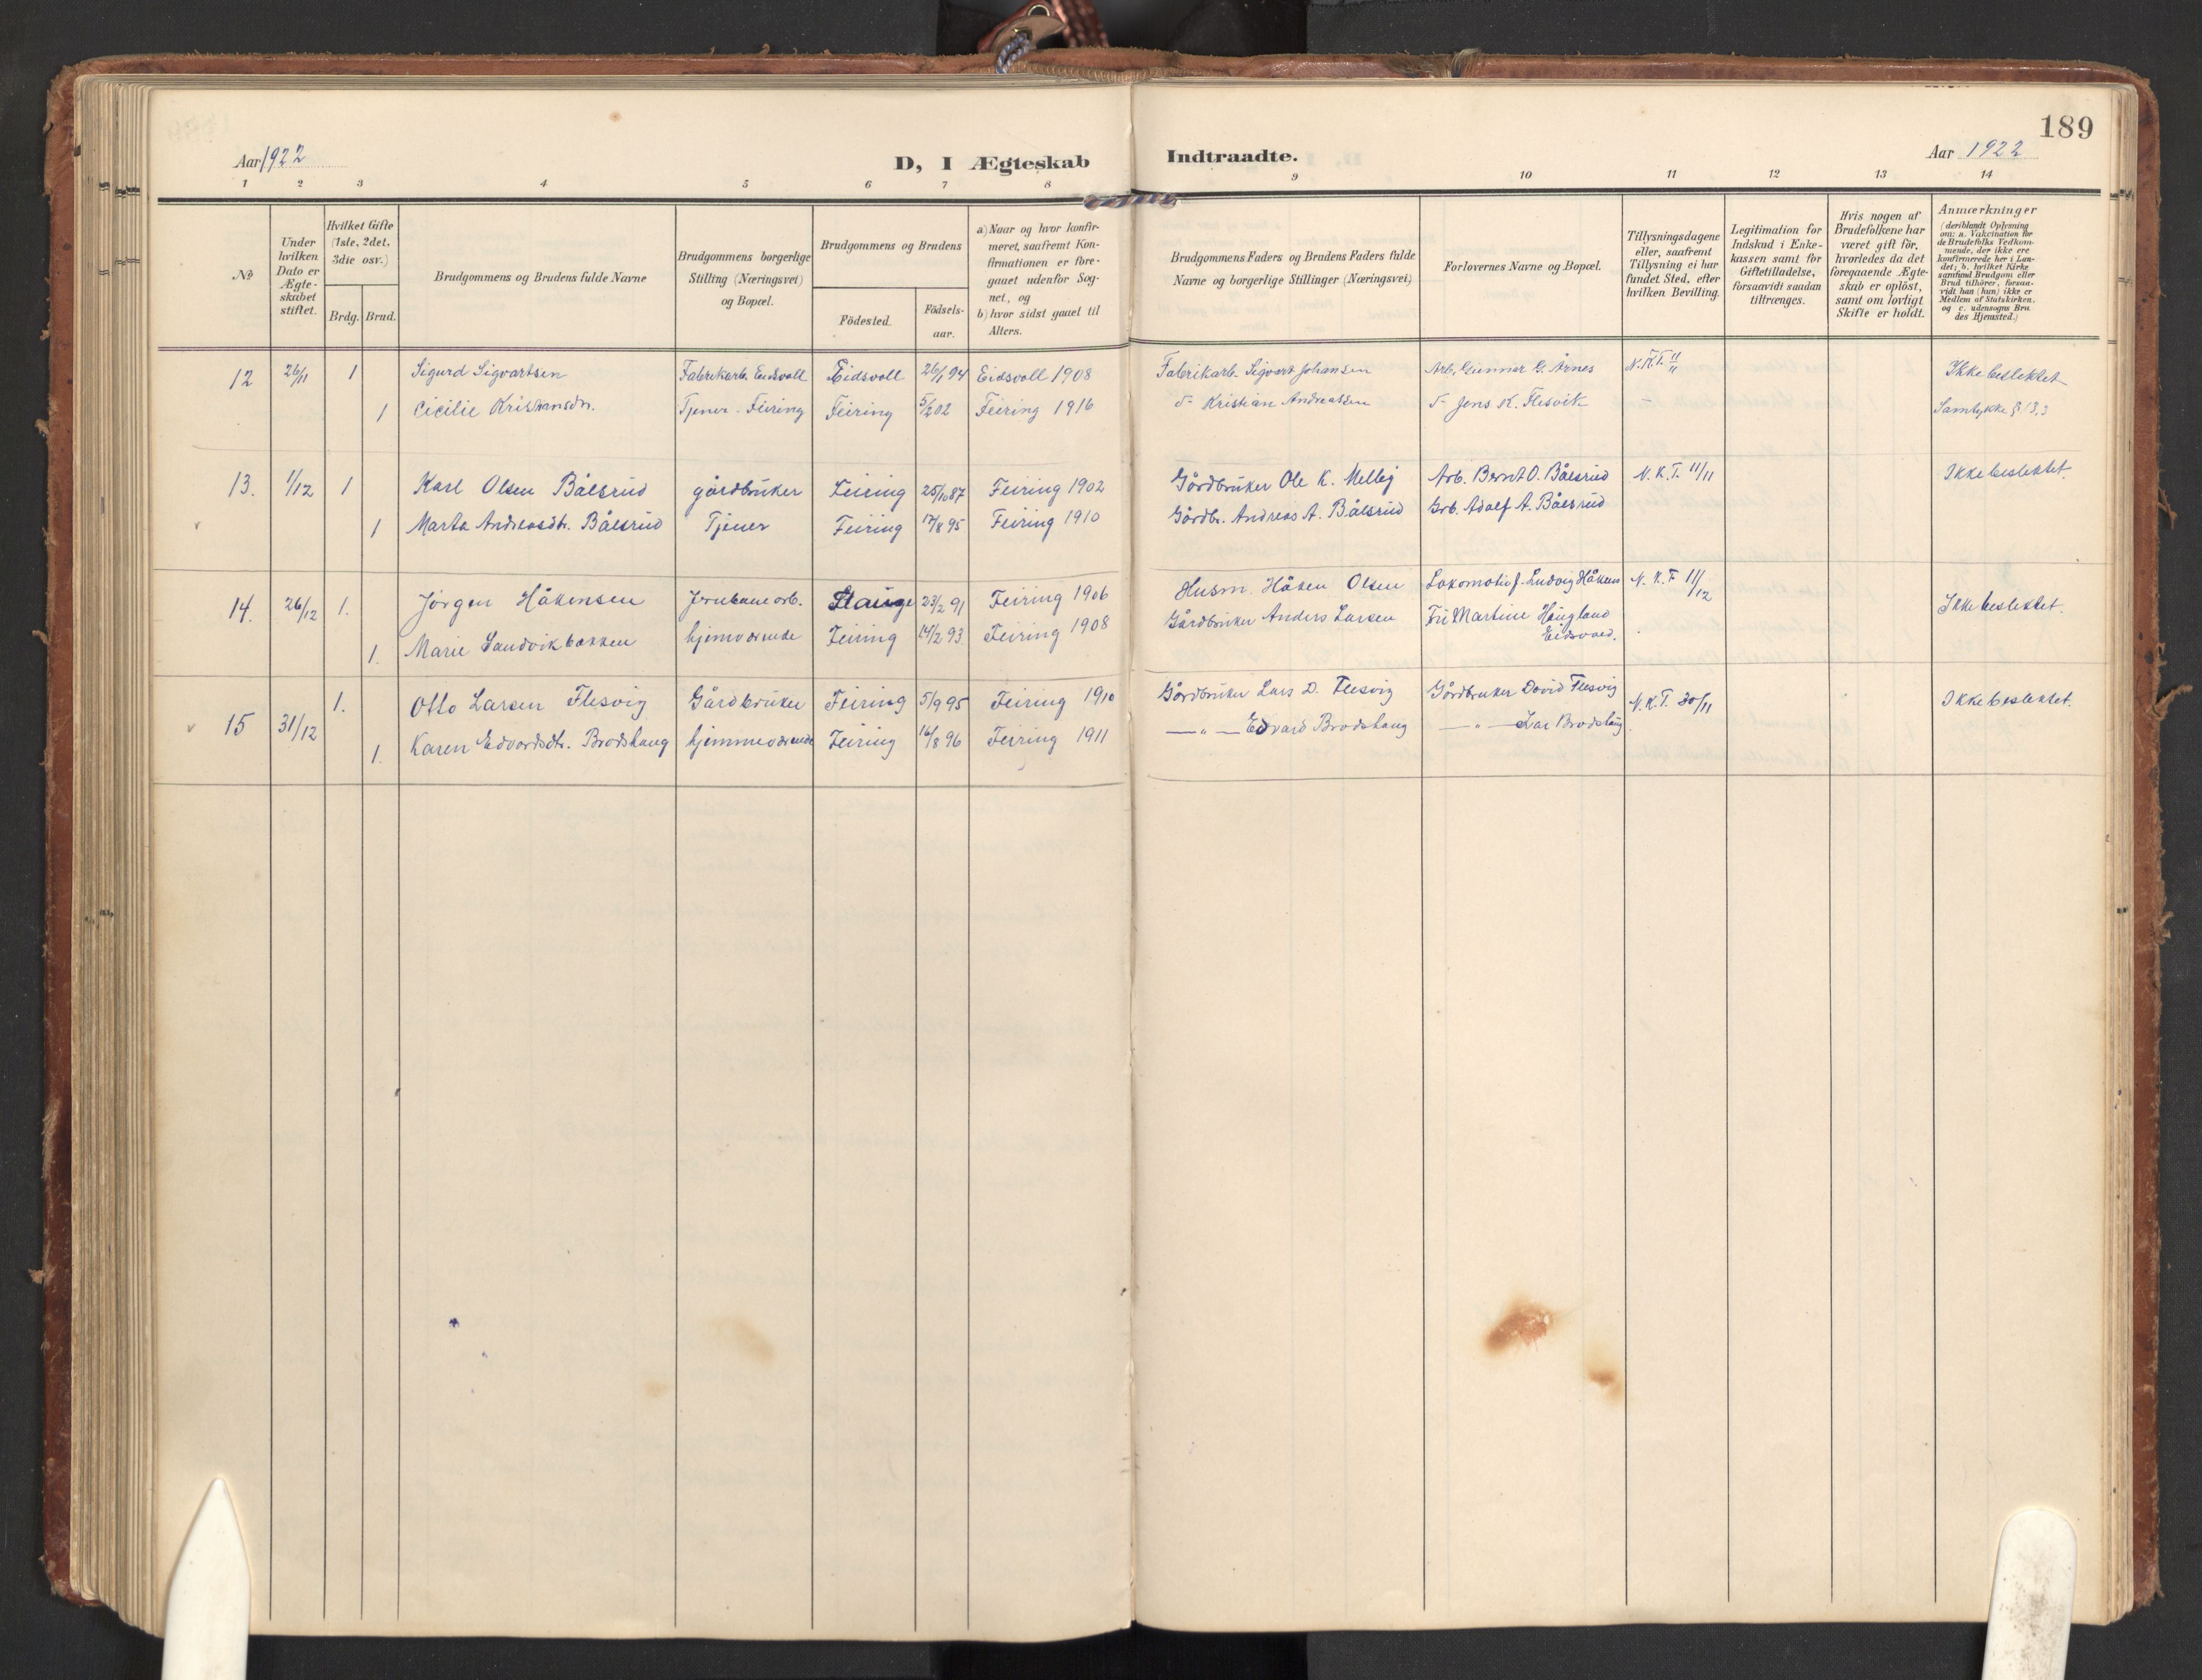 189
Aar 1922
D, I Ægteskab Indtraadte.
Aar 1922
1 2 3 4 5 6 7 8 9 10 11 12 13 14
No
Under hvilken Dato er Ægteskabet stiftet.
Hvilket Gifte (1ste, 2det, 3die osv.)
Brdg. Brud.
Brudgommens og Brudens fulde Navne
Brudgommens borgerlige Stilling (Næringsvei) og Bopæl.
Brudgommens og Brudens
Födested.
Födsels-aar.
a) Naar og hvor konfir-
meret, saafremt Kon-
firmationen er fore-
gaaet udenfor Sog-
net, og
b) hvor sidst gaaet til
Alters.
Brudgommens Faders og Brudens Faders fulde
Navne og borgerlige Stillinger (Næringsvei)
Forlovernes Navne og Bopæl.
Tillysningsdagene
eller, saafremt
Tillysning ei har
fundet Sted, efter
hvilken Bevilling.
Legitimation for
Indskud i Enke-
kassen samt for
Giftetilladelse,
forsaavidt saadan
tiltrænges.
Hvis nogen af
Brudefolkene har
været gift för,
hvorledes da det
foregaaende Ægte-
skab er oplöst,
samt om lovligt
Skifte er holdt.
Anmærkninger
(deriblandt Oplysning
om: a. Vakcination for
de Brudefolks Vedkom-
mende, der ikke ere
konfirmerede her i Lan-
det; b. hvilket Kirke-
samfund Brudgom eller
Brud tilhörer, forsaa-
vidt han (hun) ikke er
Medlem af Statskirken,
og c. udensogns Bru-
des Hjemsted.)
12 26/11 1 Sigurd Sigvartsen Fabrikarb. Eidsvoll Eidsvoll 26/1 94 Eidsvoll 1908 Fabrikarb. Sigvart Johansen Arb. Gunnar G. Årnes N.K.T. 11/11 Ikke beslektet
1 Cicilie Kristiansdr. Tjener - Feiring Feiring 5/2 02 Feiring 1916 Kristian Andreassen Jens K. Flesvik - Samtykke § 13,3
13. 1/12 1 Karl Olsen Bålsrud gårdbruker Feiring 25/10 87 Feiring 1902 Gårdbruker Ole K. Melby Arb. Bernt O. Bålsrud N.K.T. 11/11 Ikke beslektet.
1 Marta Andreasdtr. Bålsrud Tjener Feiring 17/8 95 Feiring 1910 Gårdbr. Andreas A. Bålsrud Grb. Adolf A. Bålsrud
14. 26/12 1. Jørgen Håkensen Jernbanearb. Stange 23/2 91 Feiring 1906 Husm. Håken Olsen Lokomotivf. Ludvig Håkens N.K.T 11/12 Ikke beslektet.
1. Marie Sandvikbakken hjemværende Feiring 14/2 93 Feiring 1908 Gårdbruker Anders Larsen Fru Martine Haugland
Eidsvoll.
15 31/12 1. Otto Larsen Flesvig Gårdbruker Feiring 5/9 95 Feiring 1910 Gårdbruker Lars D. Flesvig Gårdbruker David Flesvig N.K.T. 30/11 Ikke beslektet.
1. Karen Edvardsdtr. Brodshaug hjemmeværende Feiring 16/8 96 Feiring 1911 — " — Edvard Brodshaug — " — Lar Brodshaug